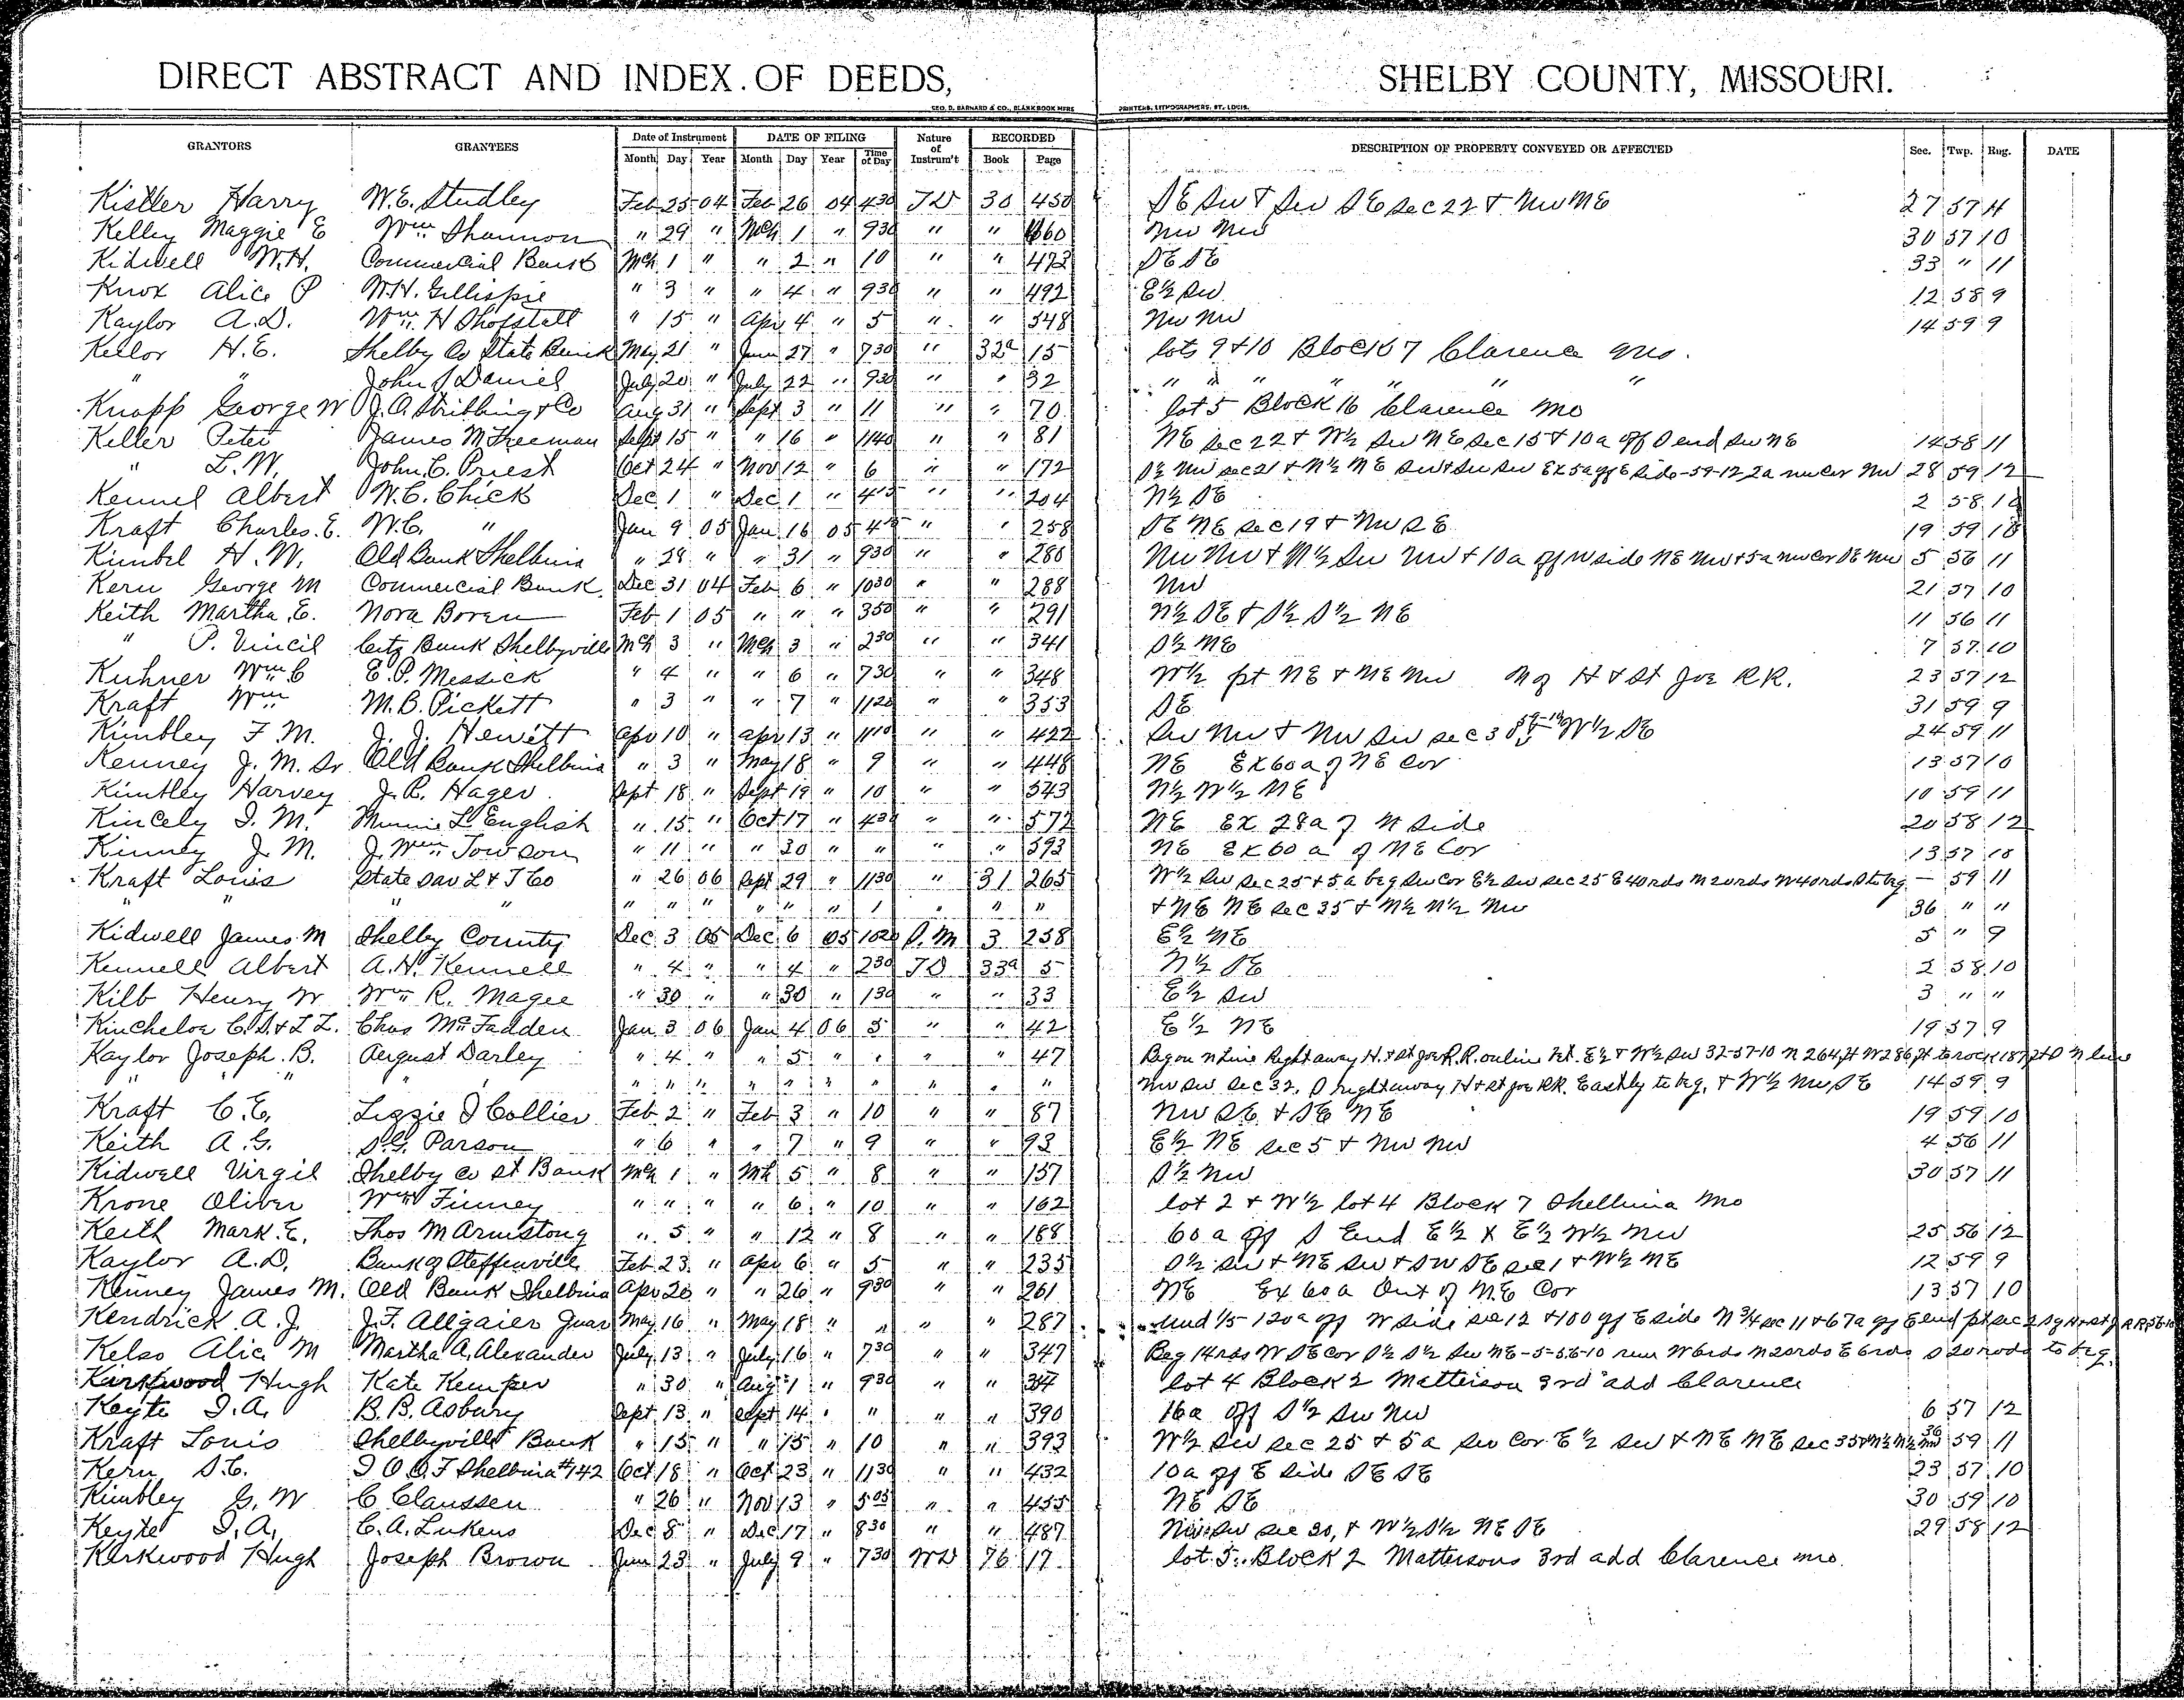 DIRECT ABSTRACT AND INDEX OF DEEDS, SHELBY COUNTY, MISSOURI.
GEO. D. BARNARD & CO., BLANK BOOK MFRS PRINTERS, LITHOGRAPHERS, ST. LOUIS.
GRANTORS GRANTEES Date of Instrument DATE OF FILING Nature of Instrum't RECORDED DESCRIPTION OF PROPERTY CONVEYED OR AFFECTED Sec. Twp. Rng. DATE
Month Day Year Month Day Year Time of Day Book Page
Kistler Harry W.E. Studley Feb 25 04 Feb 26 04 430 TD 30 450 SE SW & SW SE Sec 22 & NW NE 27 57 11
Kelley Maggie E Wm Shannon " 29 " Mch 1 " 930 " " 460 NW NW 30 57 10
Kidwell W.H. Commercial Bank Mch 1 " " 2 " 10 " " 473 SE SE 33 " 11
Knox Alice P W.H. Gillispie " 3 " " 4 " 930 " " 492 E½ SW 12 58 9
Kaylor A.D. Wm. H Shofstall " 15 " Apr 4 " 5 " " 548 NW NW 14 59 9
Keilor H.E. Shelby Co State Bank May 21 " Jun 27 " 730 " 32a 15 lots 9 & 10 Block 7 Clarence Mo.
" " John S Daniel July 20 " July 22 " 930 " " 32 " " " " " "
Knapp George W J.A. Stribbling & Co Aug 31 " Sept 3 " 11 " " 70 lot 5 Block 16 Clarence Mo
Keller Peter James M Freeman Sept 15 " " 16 " 1140 " " 81 NE Sec 22 & W½ SW NE Sec 15 & 10a off S end SW NE 14 58 11
" L.W. John C. Priest Oct 24 " Nov 12 " 6 " " 172 S½ NW Sec 21 & N½ NE SW & SW SW Ex 5a off E side - 59-12 2a NW Cor NW 28 59 12
Kennel Albert W.C. Chick Dec 1 " Dec 1 " 415 " " 204 N½ SE 2 58 10
Kraft Charles. E. W.C. " Jan 9 05 Jan 16 05 45 " " 258 SE NE Sec 19 & NW SE 19 59 10
Kimbel H.W. Old Bank Shelbina " 28 " " 31 " 930 " " 280 NW NW & N½ SW NW & 10a off W side NE NW & 5a NW Cor SE NW 5 56 11
Kern George M Commercial Bank Dec 31 04 Feb 6 " 1030 " " 288 NW 21 57 10
Keith Martha E. Nora Boren Feb 1 05 " " " 350 " " 291 N½ SE & S½ S½ NE 11 56 11
" P. Vincil Citz Bank Shelbyville Mch 3 " Mch 3 " 230 " " 341 S½ NE 7 57 10
Kuhner Wm C E.P. Messick " 4 " " 6 " 730 " " 348 W½ pt NE & NE NW N of H & St Joe RR. 23 57 12
Kraft Wm M.B. Pickett " 3 " " 7 " 1120 " " 353 SE 31 59 9
Kimbley F.M. J.J. Hewitt Apr 10 " Apr 13 " 1110 " " 422 SW NW & NW SW Sec 3 W½ SE 24 59 11
Kenney J.M. Sr Old Bank Shelbina " 3 " May 18 " 9 " " 448 NE Ex 60a of NE Cor 13 57 10
Kimbley Harvey J.R. Hager Sept 18 " Sept 19 " 10 " " 543 N½ W½ NE 10 59 11
Kincely I.M. Minnie L English " 15 " Oct 17 " 430 " " 572 NE Ex 28a of N side 20 58 12
Kinney J.M. J. Wm. Towson " 11 " " 30 " " " " 593 NE Ex 60 a of NE Cor 13 57 10
Kraft Louis State Sav L & T Co " 26 06 Sept 29 " 1130 " 31 265 W½ SW Sec 25 & 5a beg SW Cor E½ SW Sec 25 E 40rds N 20rds W 40rds S to beg — 59 11
" " " " " " " " " " 1 " " " & NE NE Sec 35 & N½ N½ NW 36 " "
Kidwell James M Shelby County Dec 3 05 Dec 6 05 1020 S.M 3 258 E½ NE 5 " 9
Kennell Albert A.H. Kennell " 4 " " 4 " 230 TD 33a 5 N½ SE 2 58 10
Kilb Henry W Wm R. Magee " 30 " " 30 " 130 " " 33 E½ SW 3 " "
Kincheloe C.S. & L.L. Chas McFadden Jan 3 06 Jan 4 06 5 " " 42 E½ NE 19 57 9
Kaylor Joseph B. August Darley " 4 " " 5 " " " " 47 Beg on N Line Right away H. & St Joe R.R. on line bet. E½ & W½ SW 32-57-10 N 264ft W 286ft to rock 187ft S N line
" " " " " " " " " " " " " " NW SW Sec 32, S right away H & St Joe RR. Eastly to beg. & W½ NW SE 14 59 9
Kraft C.E. Lizzie J Collier Feb 2 " Feb 3 " 10 " " 87 NW SE & SE NE 19 59 10
Keith A.G. S.G. Parson " 6 " " 7 " 9 " " 93 E½ NE Sec 5 & NW NW 4 56 11
Kidwell Virgil Shelby Co St Bank Mch 1 " Mch 5 " 8 " " 157 S½ NW 30 57 11
Krone Oliver Wm Finney " " " " 6 " 10 " " 162 lot 2 & W½ lot 4 Block 7 Shelbina Mo
Keith Mark E. Thos M Armstong " 5 " " 12 " 8 " " 188 60 a off S End E½ & E½ W½ NW 25 56 12
Kaylor A.D. Bank of Steffenville Feb 23 " Apr 6 " 5 " " 235 S½ SW & NE SW & SW SE Sec 1 & W½ NE 12 59 9
Kenney James M. Old Bank Shelbina Apr 20 " " 26 " 930 " " 261 NE Ex 60a Out of NE Cor 13 57 10
Kendrick A.J. J.F. Allgaier Guar May 16 " May 18 " " " " 287 und 1/5 - 120a off W side Sec 12 & 100 off E side N ¾ Sec 11 & 67a off E end pt Sec 2
Kelso Alice M Martha A. Alexander July 13 " July 16 " 730 " " 347 Beg 14rds W SE Cor S½ S½ SW NE - 5-56-10 run W 6rds N 20rds E 6rds S 20 rods to beg.
Kirkwood Hugh Kate Kemper " 30 " Aug 1 " 930 " " 364 lot 4 Block 2 Matterson 3rd add Clarence
Keyte I.A. B.B. Asbury Sept 13 " Sept 14 " " " " 390 16a off S½ SW NW 6 57 12
Kraft Louis Shelbyville Bank " 15 " " 15 " 10 " " 393 W½ SW Sec 25 & 5a SW Cor E½ SW & NE NE Sec 35 & N½ N½ NW 36 59 11
Kern S.C. I O O.F Shelbina #142 Oct 18 " Oct 23 " 1130 " " 432 10a off E side SE SE 23 57 10
Kimbley G.W C Claussen " 26 " Nov 13 " 505 " " 455 NE SE 30 59 10
Keyte I.A. C.A. Lukens Dec 8 " Dec 17 " 830 " " 487 NW SW Sec 30, & W½ S½ NE SE 29 58 12
Kirkwood Hugh Joseph Brown Jun 23 " July 9 " 730 WD 76 17 lot 5. Block 2 Mattersons 3rd add Clarence Mo.